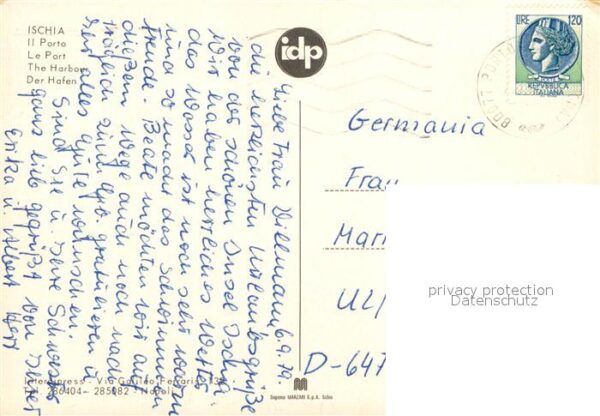 ISCHIA
Il Porto
Le Port
The Harbour
Der Hafen
idp
LIRE 120
REPVBBLICA
ITALIANA
6.9.70.
Liebe Frau Dillmann,
die herzlichsten Urlaubsgrüße
von der schönen Insel Ischia.
Wir haben herrliches Wetter
das Wasser ist noch sehr warm
und so macht das Schwimmen
Freude. Beate möchten wir auf
diesem Wege auch noch nach-
träglich zum geb. gratulieren u.
ihr alles gute wünschen.
Sind Sie u. Ihre Schwester
ganz lieb gegrüßt von Ihrer
Erika u. Albert Herr
Germania
Frau
Mar
D-647
privacy protection
Datenschutz
Interdipress - Via Galileo Ferraris, 132
Tel. 286404 - 285082 - Napoli
M